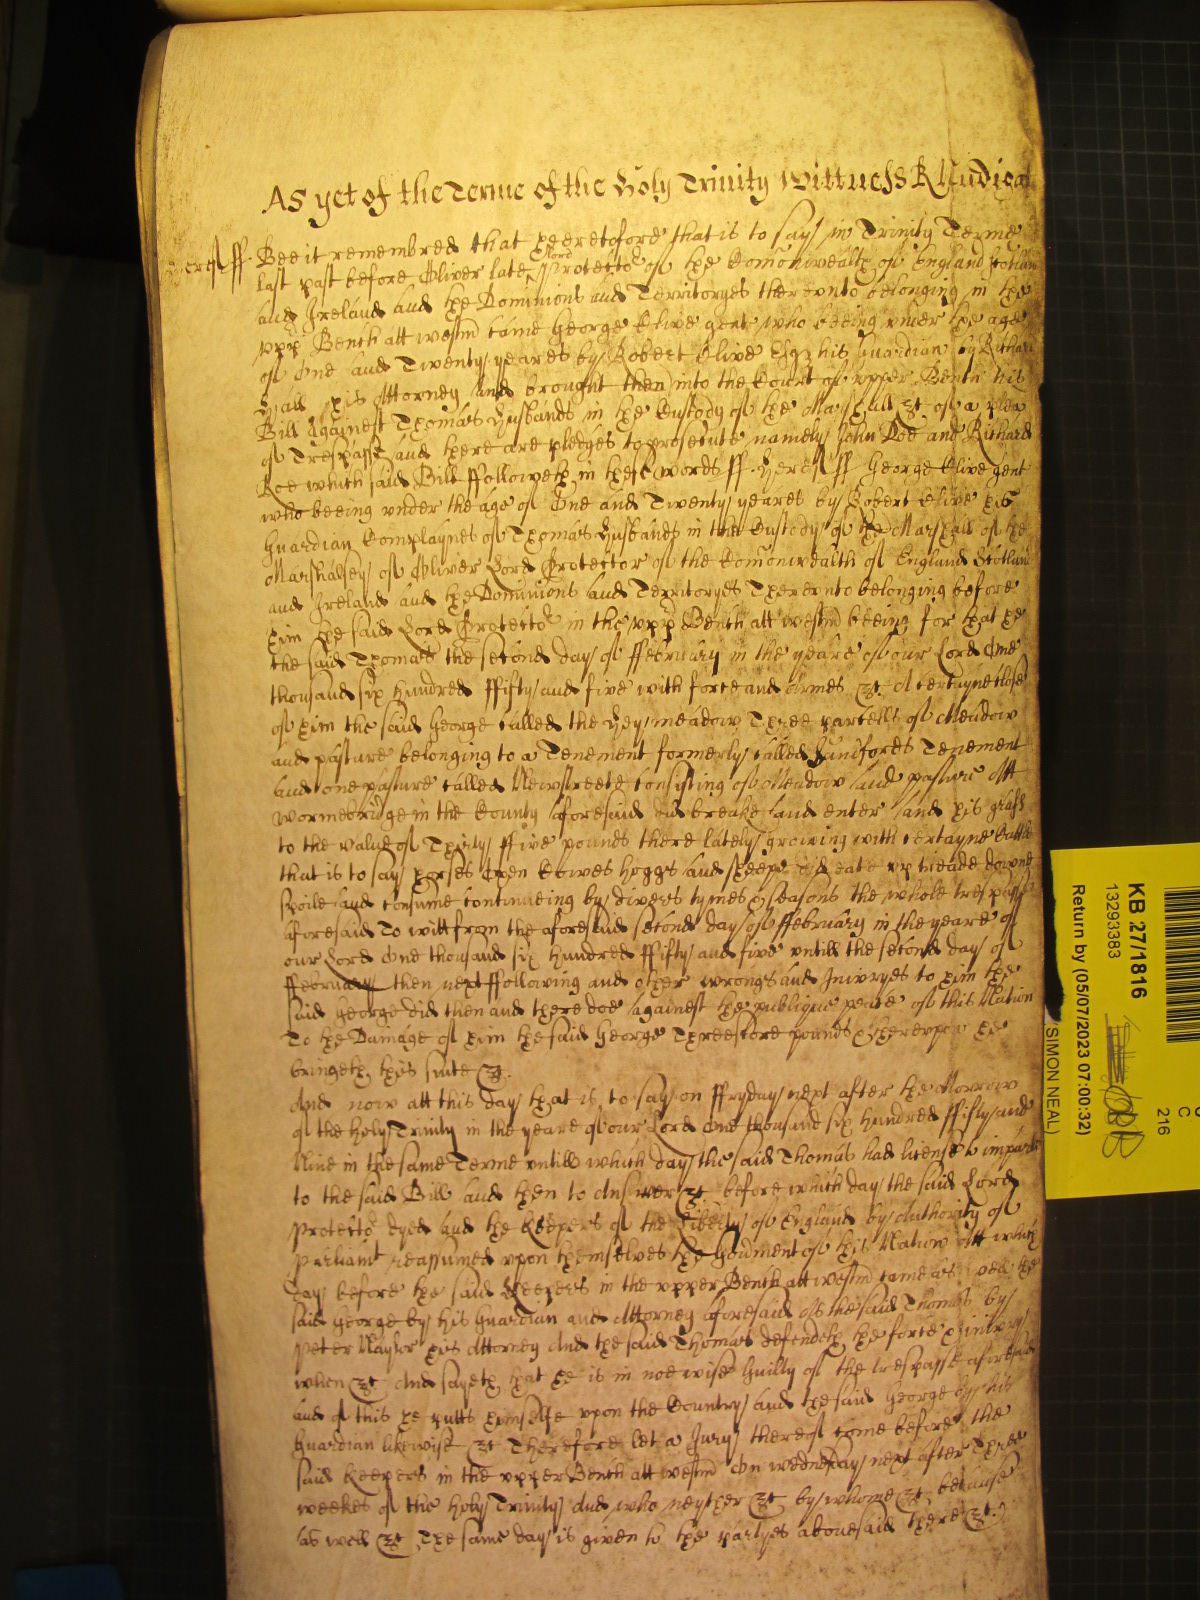 As yet of the Terme of the Holy Trinity Wittness R Nudigat
Heref ss Bee it remembred that heeretofore that is to say in Trinity Terme
last past before Oliver late Lord Protector of the Comonwealth of England Scotland
and Ireland and the Dominions and Territoryes thereunto belonging in the
upp Bench att westm came George Clive gent who beeing under the age
of One and Twenty yeares by Robert Clive Esqr his Guardian by Richard
Hall his Attorney And brought then into the Court of upper Bench his
Bill Against Thomas Husbands in the Custody of the Marshall &c of a plea
of Trespasse and there are pledges to prosecute namely John Doe and Richard
Roe which said Bill ffolloweth in these words ss Heref ss George Clive gent
who beeing under the age of One and Twenty yeares by Robert Clive his
Guardian Complaynes of Thomas Husbands in the Custody of the Marshall of the
Marshalsey of Oliver Lord Protector of the Comonwealth of England Scotland
and Ireland and the Dominions and Territoryes Thereunto belonging before
him the said Lord Protector in the upp Bench att westm beeing for that he
the said Thomas the second day of ffebruary in the yeare of our Lord One
thousand six hundred ffifty and five with force and Armes &c A certayne close
of him the said George called the Hey meadow Three parcells of Meadow
and pasture belonging to a Tenement formerly called Tenement
And one pasture called Newstreete consisting of Meadow And pasture Att
wormebridge in the County Aforesaid did breake And enter And his grasse
to the value of Thirty ffive pounds there lately growing with certayne Cattle
that is to say horses Oxen Cowes hoggs And sheepe did eate up treade downe
spoile And consume continueing by divers tymes & seasons the whole trespasse
Aforesaid To witt from the aforesaid second day of ffebruary in the yeare of
our Lord One thousand six hundred ffifty and five untill the second day of
ffebruary then next ffollowing and other wrongs and Iniuryes to him the
said George did then and there doe Against the publique peace of this Nation
To the Damage of him the said George Threescore pounds & thereupon he
bringeth this suite &c.
And now att this day that is to say on ffryday next after the Morrow
of the Holy Trinity in the yeare of our Lord One thousand six hundred ffifty and
Nine in the same Terme untill which day the said Thomas had license to imparle
to the said Bill and then to Answer &c before which day the said Lord
Protector dyed and the Keepers of the Liberty of England by Authority of
Parliamt reassumed upon themselves the Govment of this Nation Att which
day before the said Keepers in the upper Bench att westm came as well the
said George by his Guardian and Attorney aforesaid As the said Thomas by
Peter Naylor his Attorney And the said Thomas defendeth the force & iniury
when &c And sayeth that he is in noe wise Guilty of the trespasse aforesaid
and of this he putts himselfe upon the Country and the said George by his
Guardian likewise &c Therefore let a Jury thereof come before the
said Keepers in the upper Bench att westm On wednesday next after Three
weekes of the Holy Trinity And who neyther &c by whome &c because
As well &c The same day is given to the partyes abovesaid there &c.
KB 27/1816
13293383
Return by (05/07/2023 07:00:32)
(SIMON NEAL)
C
216